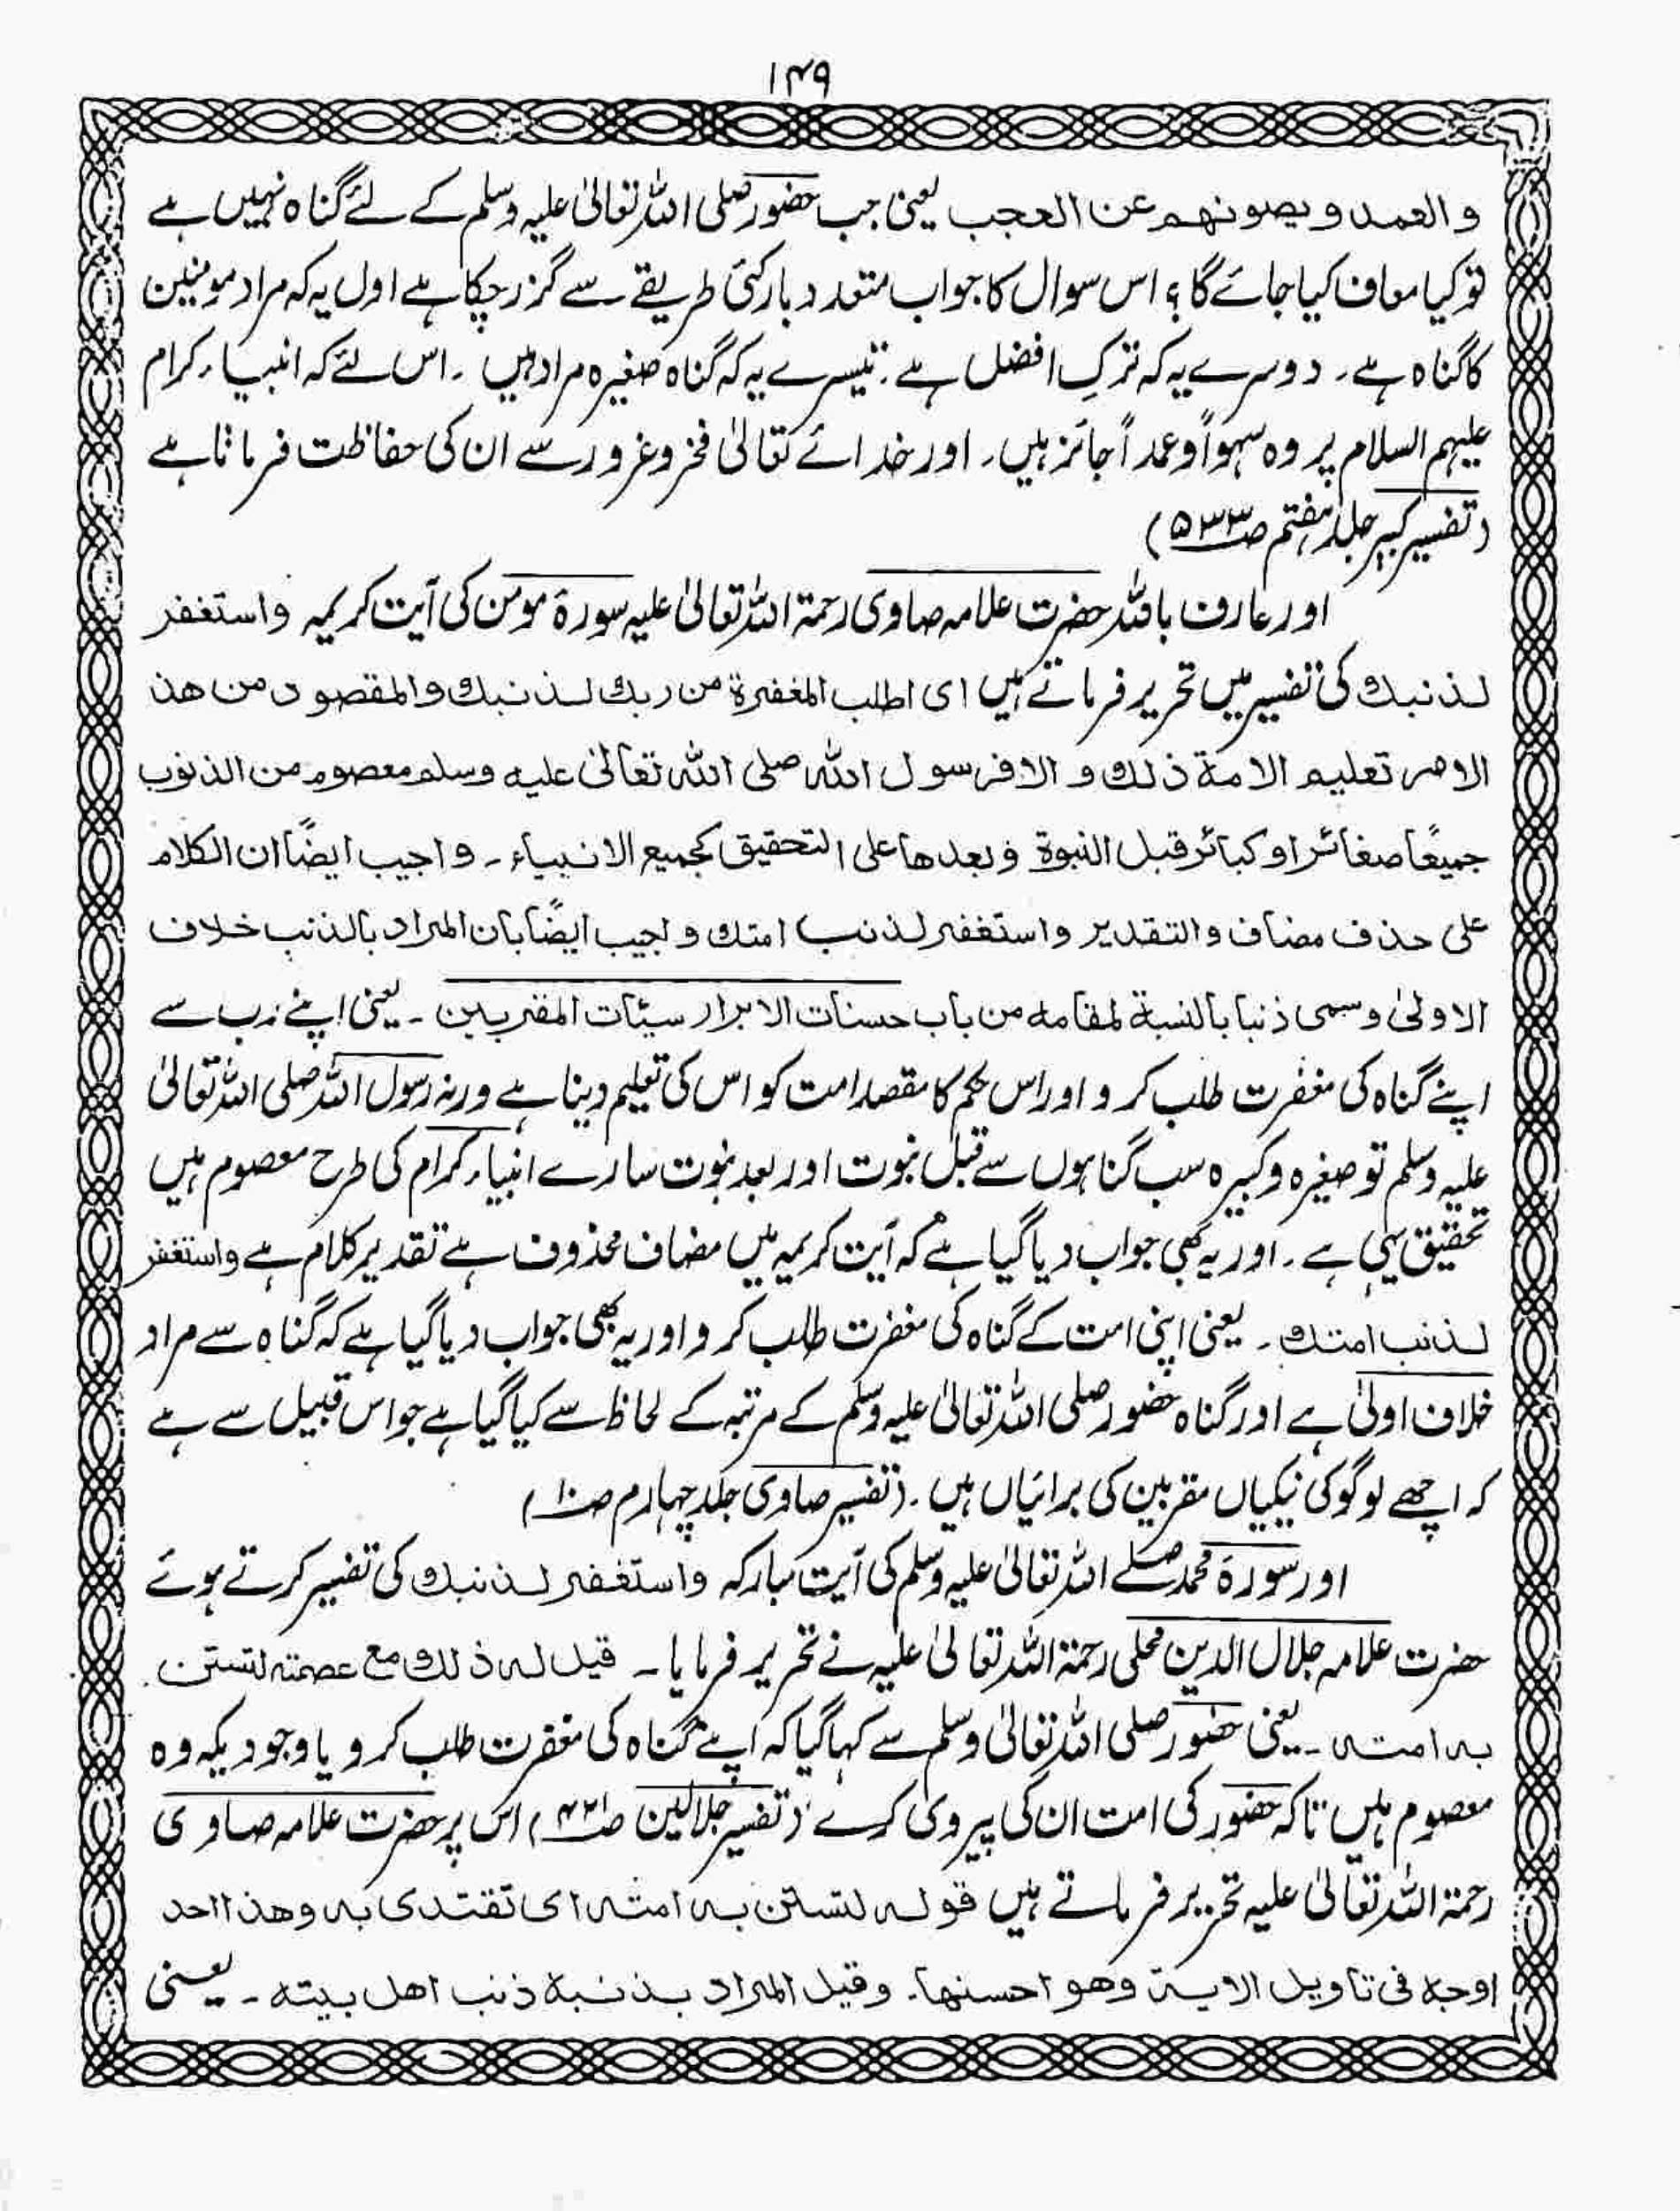 ۱۴۹
و العمد و یصونھم عن العجب یعنی جب حضور صلی اللہ تعالیٰ علیہ وسلم کے لئے گناہ نہیں ہے
تو کیا معاف کیا جائے گا؟ اس سوال کا جواب متعدد بار کئی طریقے سے گزر چکا ہے اول یہ کہ مراد مومنین
کا گناہ ہے۔ دوسرے یہ کہ ترکِ افضل ہے۔ تیسرے یہ کہ گناہ صغیرہ مراد ہیں۔ اس لئے کہ انبیاء کرام
علیہم السلام پر وہ سہواً و عمداً جائز ہیں۔ اور خدائے تعالیٰ فخر و غرور سے ان کی حفاظت فرماتا ہے
(تفسیر کبیر جلد ہفتم ص ۵۳۳)
اور عارف باللہ حضرت علامہ صاوی رحمۃ اللہ تعالیٰ علیہ سورۃ مومن کی آیت کریمہ واستغفر
لذنبک کی تفسیر میں تحریر فرماتے ہیں ای اطلب المغفرة من ربک لذنبک والمقصود من ھذ
الامر تعلیم الامة ذلک و الافرسول اللہ صلی اللہ تعالیٰ علیہ وسلم معصوم من الذنوب
جمیعًا صغائر او کبائر قبل النبوة و بعدھا علی التحقیق کجمیع الانبیاء۔ و اجیب ایضًا ان الکلام
علی حذف مضاف والتقدیر واستغفر لذنب امتک و اجیب ایضًا بان المراد بالذنب خلاف
الاولیٰ وسمی ذنبا بالنسبة لمقامه من باب حسنات الابرار سیئات المقربین۔ یعنی اپنے رب سے
اپنے گناہ کی مغفرت طلب کرو اور اس حکم کا مقصد امت کو اس کی تعلیم دینا ہے ورنہ رسول اللہ صلی اللہ تعالیٰ
علیہ وسلم تو صغیرہ و کبیرہ سب گناہوں سے قبل نبوت اور بعد نبوت سارے انبیاء کرام کی طرح معصوم ہیں
تحقیق یہی ہے۔ اور یہ بھی جواب دیا گیا ہے کہ آیت کریمہ میں مضاف محذوف ہے تقدیر کلام ہے واستغفر
لذنب امتک۔ یعنی اپنی امت کے گناہ کی مغفرت طلب کرو اور یہ بھی جواب دیا گیا ہے کہ گناہ سے مراد
خلاف اولیٰ ہے اور گناہ حضور صلی اللہ تعالیٰ علیہ وسلم کے مرتبہ کے لحاظ سے کیا گیا ہے جو اس قبیل سے ہے
کہ اچھے لوگو کی نیکیاں مقربین کی برائیاں ہیں۔ (تفسیر صاوی جلد چہارم ص ۱۰)
اور سورۃ محمد صلے اللہ تعالیٰ علیہ وسلم کی آیت مبارکہ واستغفر لذنبک کی تفسیر کرتے ہوئے
حضرت علامہ جلال الدین محلی رحمۃ اللہ تعالیٰ علیہ نے تحریر فرمایا۔ قیل له ذلک مع عصمته لتستن
به امته۔ یعنی حضور صلی اللہ تعالیٰ وسلم سے کہا گیا کہ اپنے گناہ کی مغفرت طلب کرو یا وجودیکہ وہ
معصوم ہیں تاکہ حضور کی امت ان کی پیروی کرے (تفسیر جلالین ص ۴۲۱) اس پر حضرت علامہ صاوی
رحمۃ اللہ تعالیٰ علیہ تحریر فرماتے ہیں قوله لتستن به امته ای تقتدی به وھذا احد
اوجه فی تاویل الایة وھو احسنھا۔ وقیل المراد بذنبه ذنب اھل بیته۔ یعنی